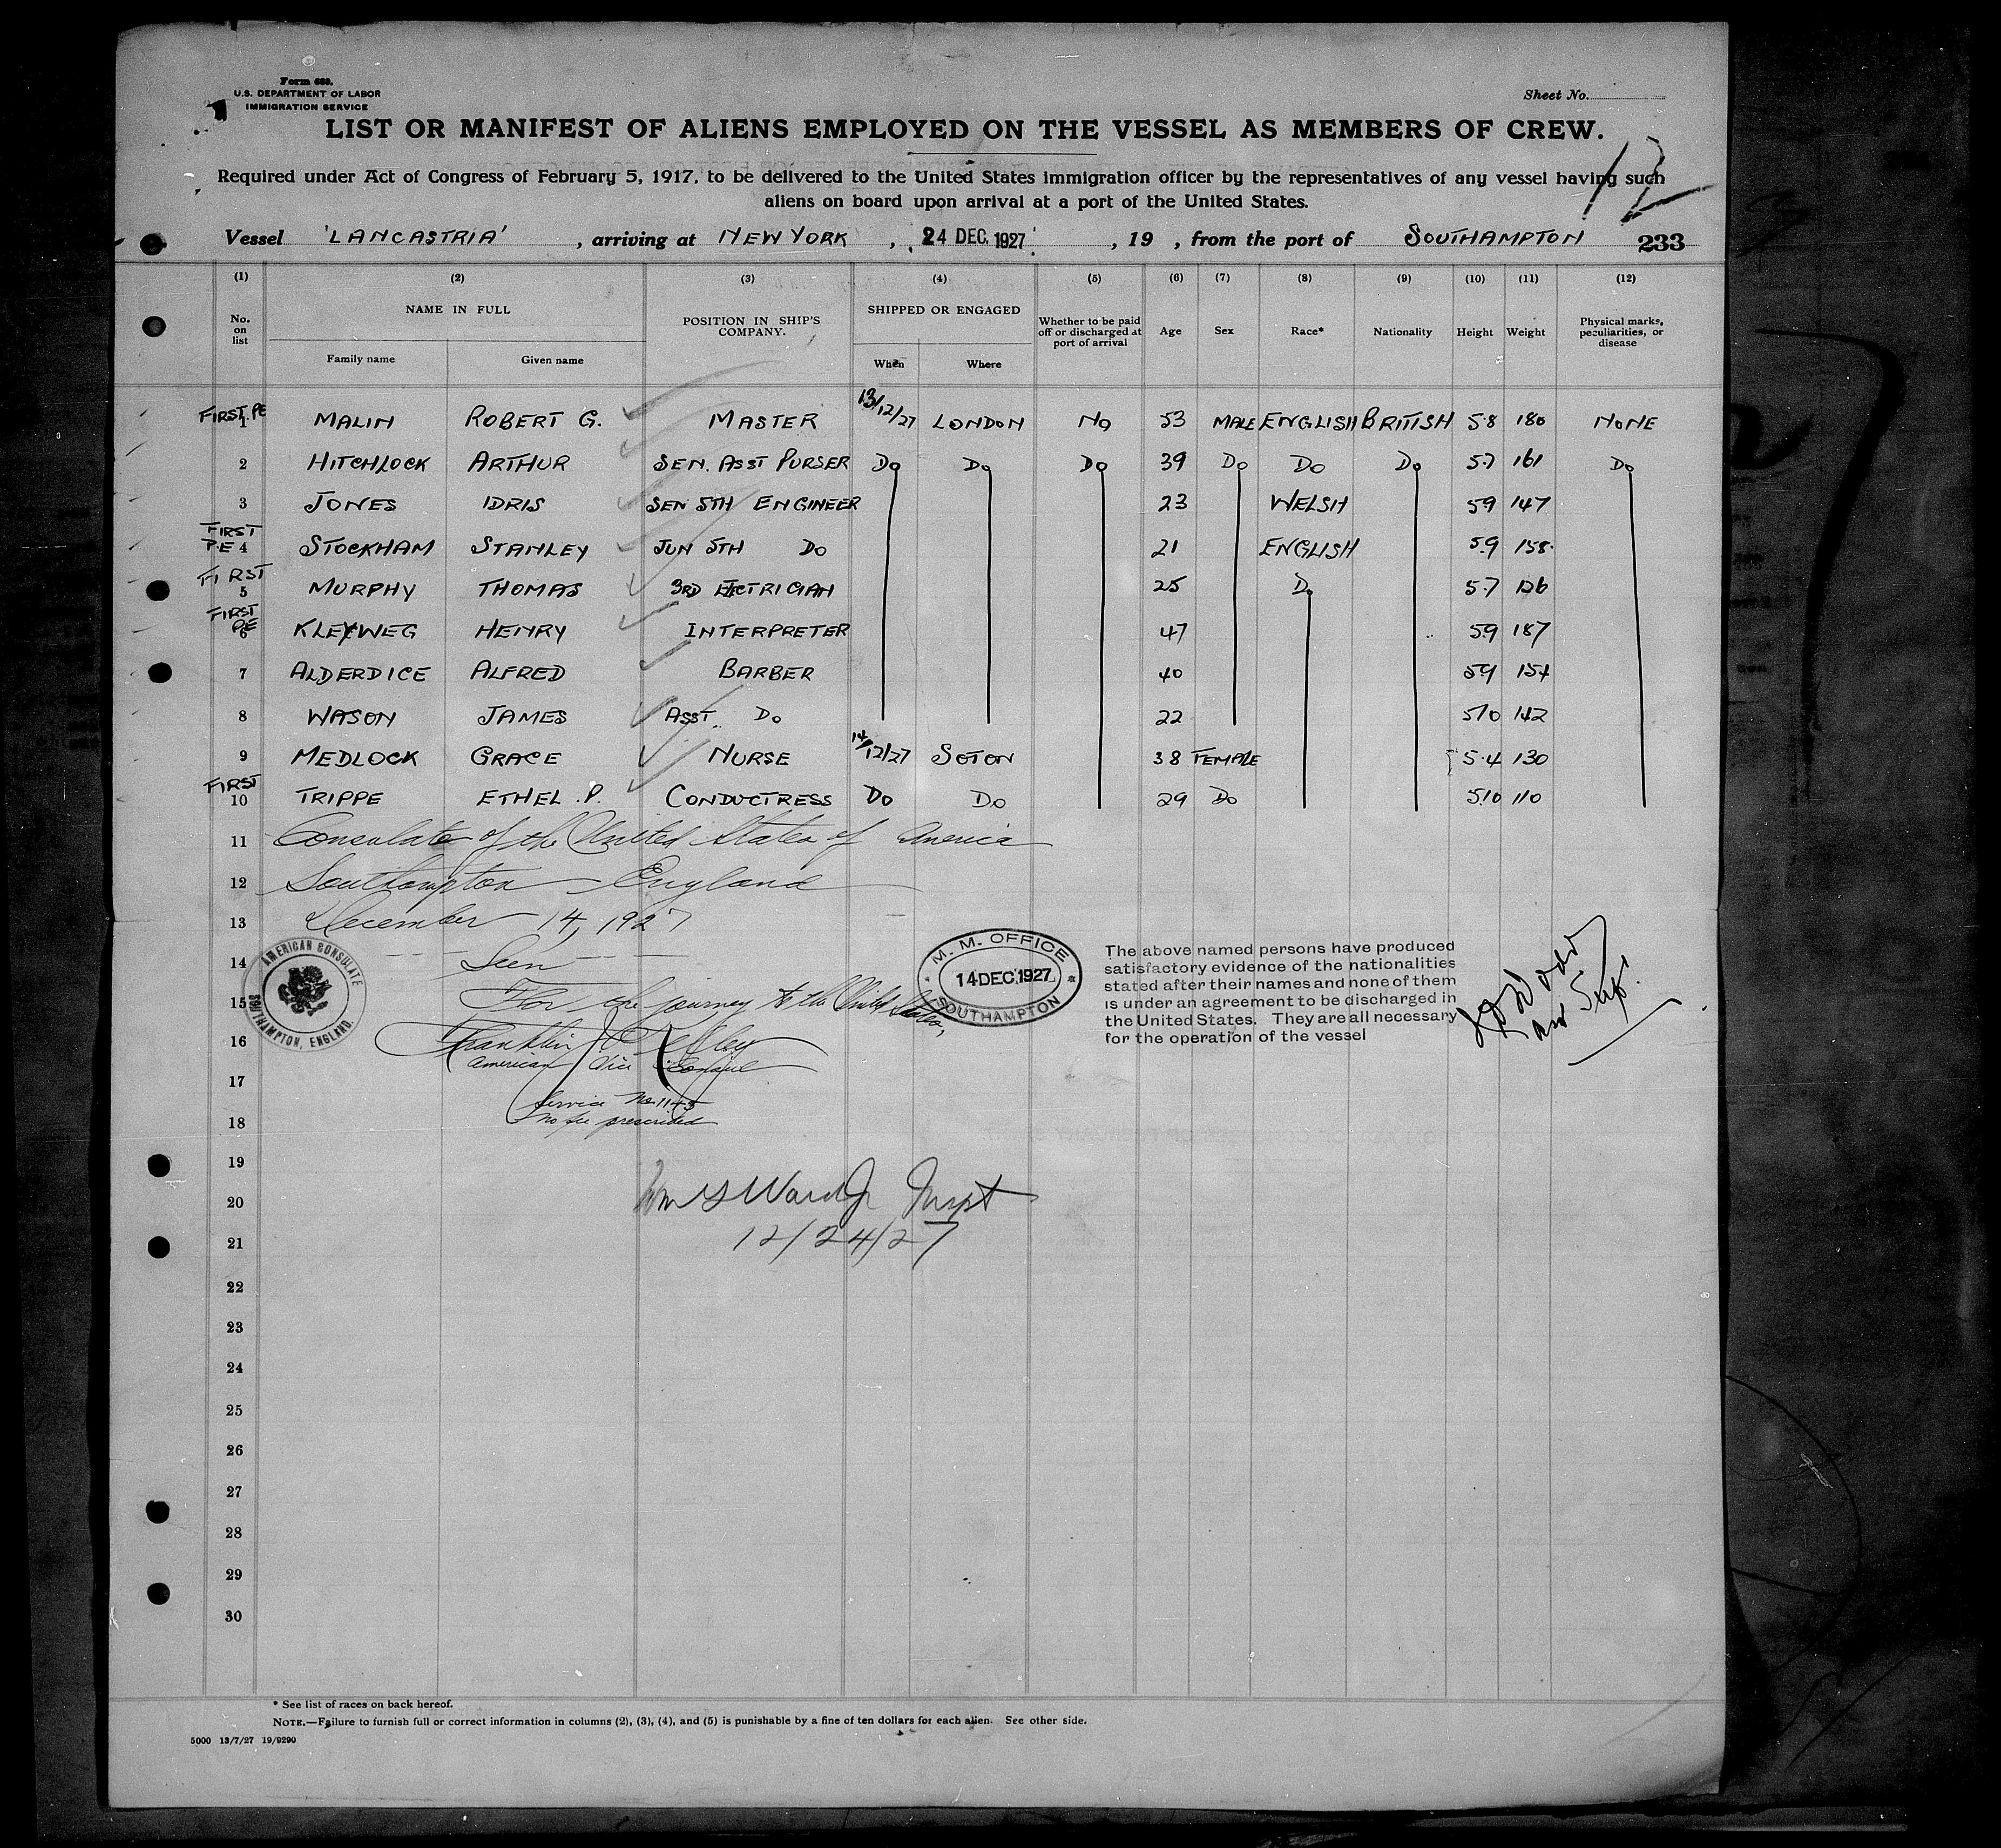 Form 689.
U.S. DEPARTMENT OF LABOR
IMMIGRATION SERVICE
Sheet No.
LIST OR MANIFEST OF ALIENS EMPLOYED ON THE VESSEL AS MEMBERS OF CREW.
Required under Act of Congress of February 5, 1917, to be delivered to the United States immigration officer by the representatives of any vessel having such
aliens on board upon arrival at a port of the United States.
Vessel 'LANCASTRIA', arriving at NEW YORK, 24 DEC. 1927, 19 , from the port of SOUTHAMPTON 233
(1) (2) (3) (4) (5) (6) (7) (8) (9) (10) (11) (12)
No. on list NAME IN FULL POSITION IN SHIP'S COMPANY. SHIPPED OR ENGAGED Whether to be paid off or discharged at port of arrival Age Sex Race* Nationality Height Weight Physical marks, peculiarities, or disease
Family name Given name When Where
FIRST. PE 1 MALIN ROBERT G. MASTER 13/12/27 LONDON NO 53 MALE ENGLISH BRITISH 5·8 180 NONE
2 HITCHLOCK ARTHUR SEN. ASST PURSER DO DO DO 39 DO DO DO 5·7 161 DO
3 JONES IDRIS SEN 5TH ENGINEER 23 WELSH 59 147
FIRST P.E 4 STOCKHAM STANLEY JUN 5TH DO 21 ENGLISH 5.9 158.
FIRST 5 MURPHY THOMAS 3RD 25 DO 5·7 126
FIRST PE 6 KLEYWEG HENRY INTERPRETER 47 59 187
7 ALDERDICE ALFRED BARBER 40 154
8 WASON JAMES ASST. DO 22 510 142
9 MEDLOCK GRACE NURSE 14/12/27 SOTON 38 FEMALE 5·4 130
FIRST 10 TRIPPE ETHEL .P. CONDUCTRESS DO DO 29 DO 5.10 110
11 Consulate of the United States of America
12 Southampton England
13 December 14, 1927
14 Seen
15 For the journey to the United States,
16 Franklin
17 American Vice Consul
Service No. 1145
18 no fee prescribed
AMERICAN CONSULATE
SOUTHAMPTON, ENGLAND.
M. M. OFFICE
14 DEC. 1927
SOUTHAMPTON
The above named persons have produced
satisfactory evidence of the nationalities
stated after their names and none of them
is under an agreement to be discharged in
the United States. They are all necessary
for the operation of the vessel
19
20 Wm S Ward Jr Inspt
21 12/24/27
22
23
24
25
26
27
28
29
30
* See list of races on back hereof.
NOTE.—Failure to furnish full or correct information in columns (2), (3), (4), and (5) is punishable by a fine of ten dollars for each alien. See other side.
5000 13/7/27 19/9290